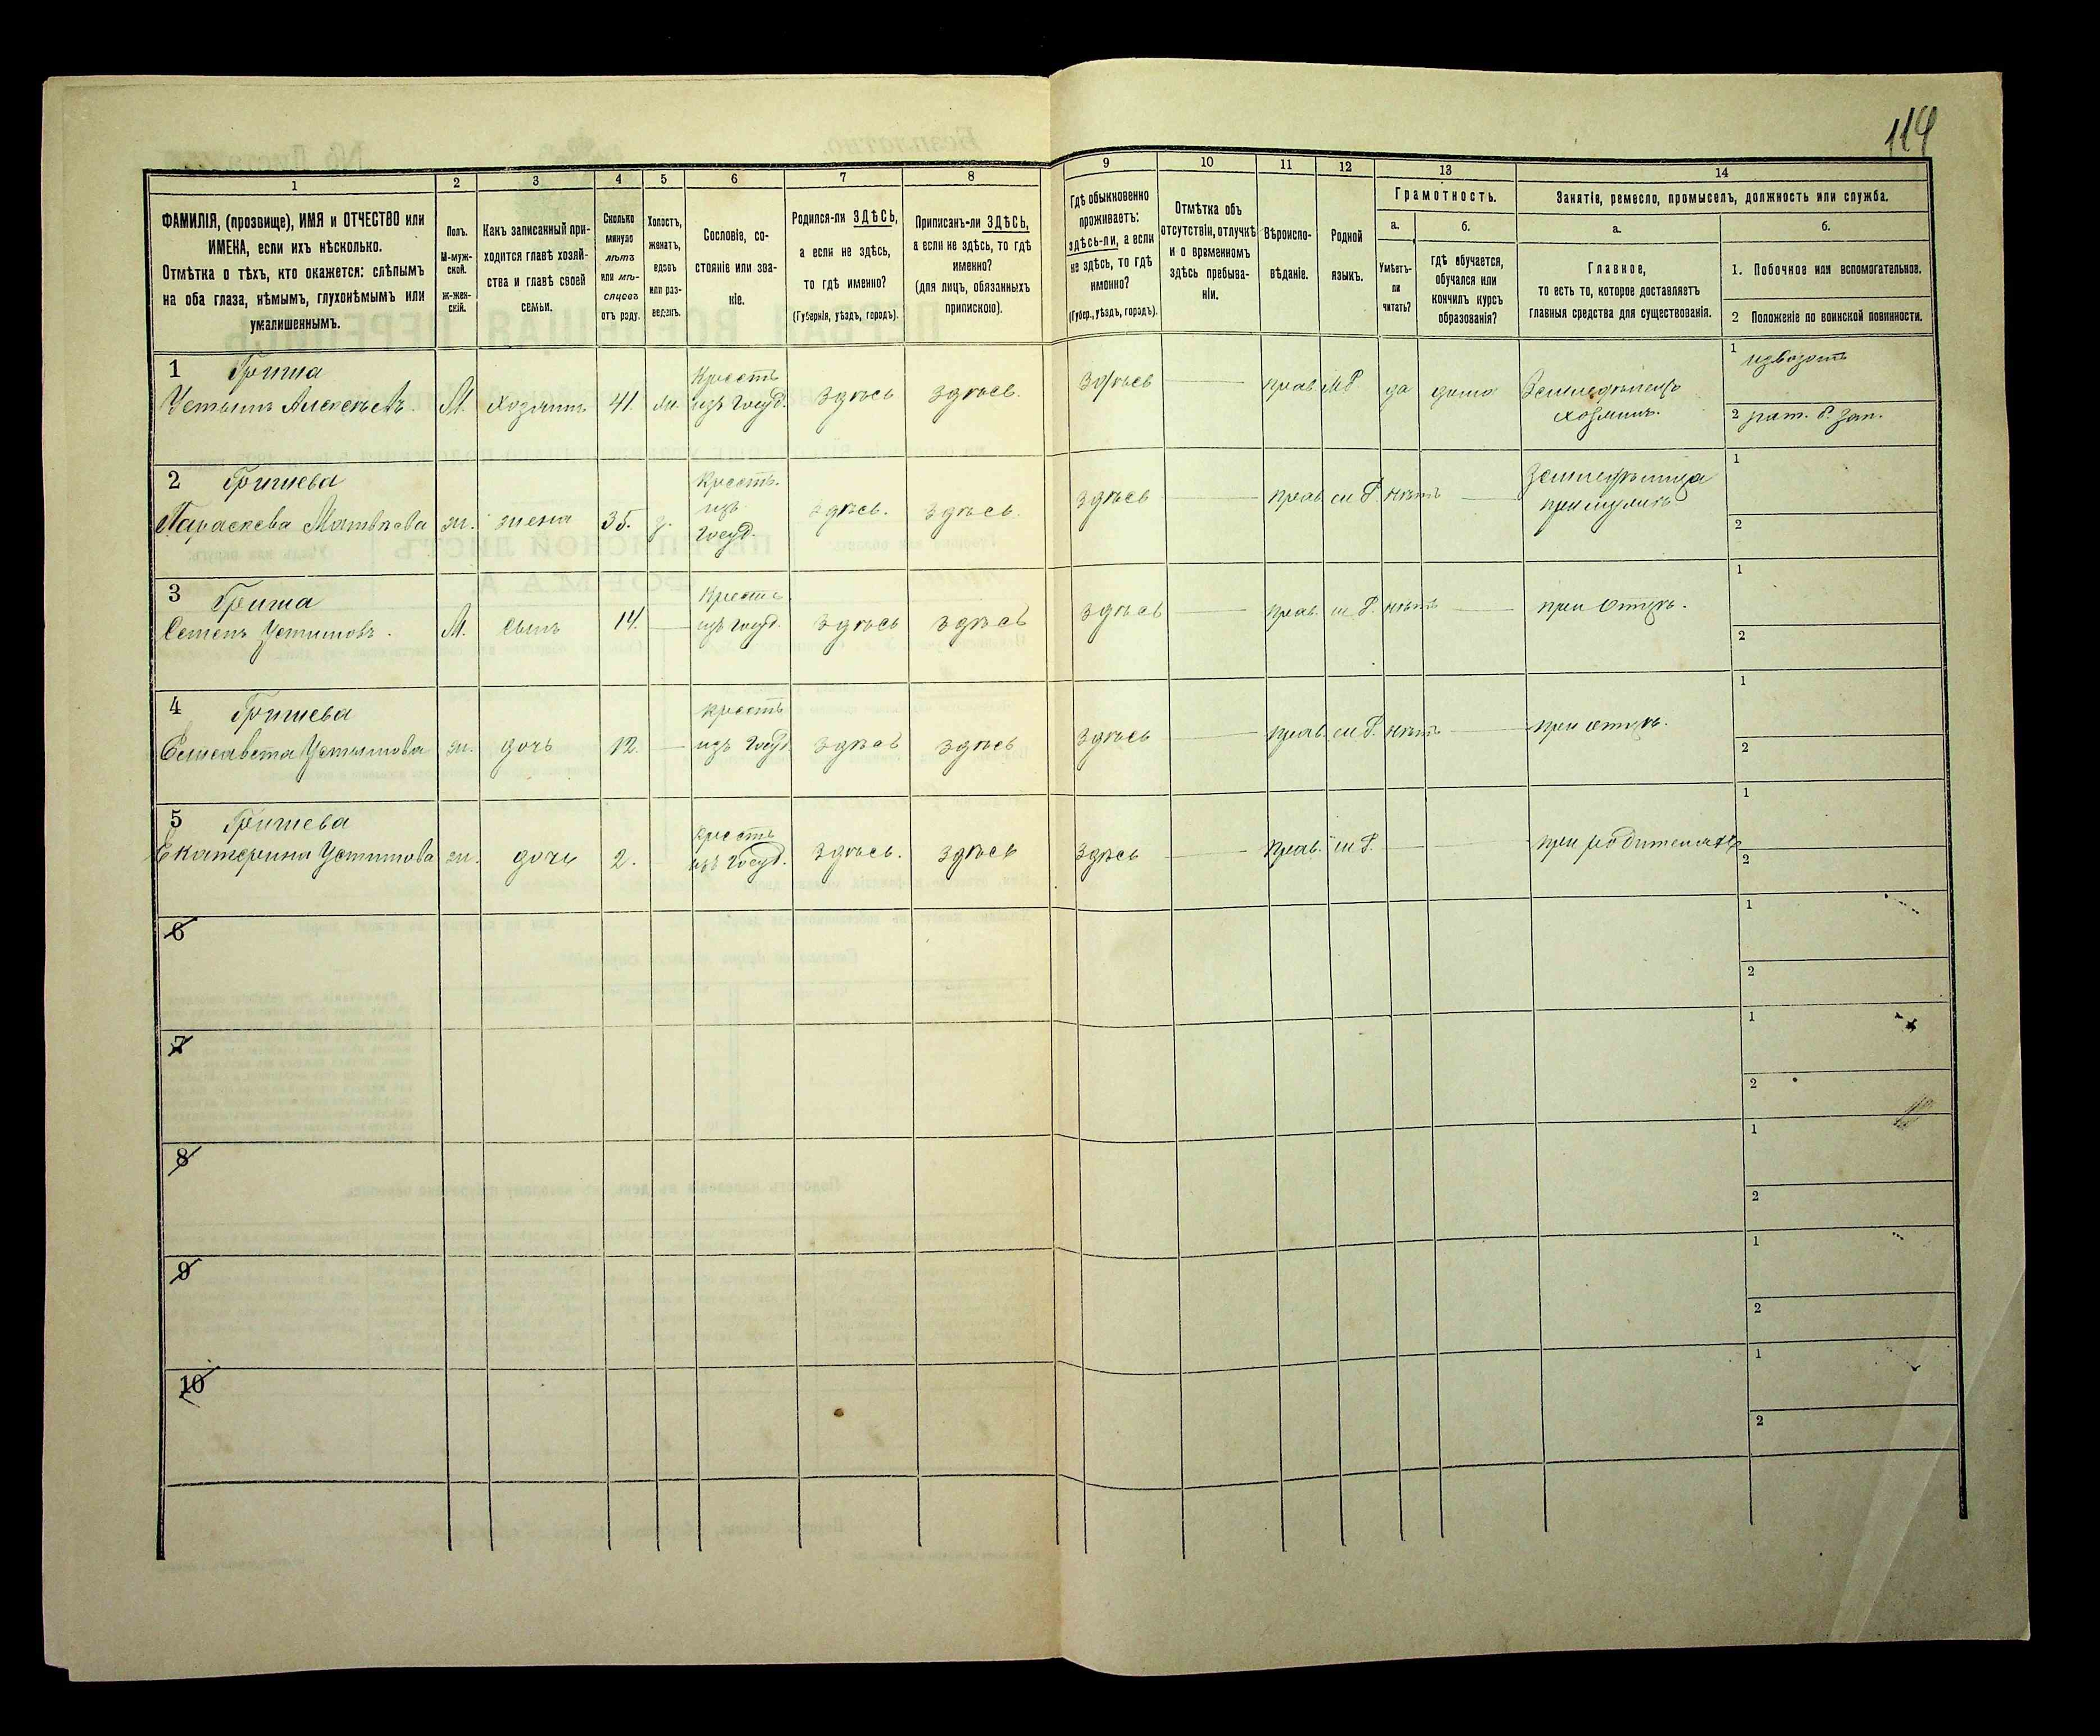 119
1
2
3
4
5
6
7
8
9
10
11
12
13
14
ФАМИЛІЯ, (прозвище), ИМЯ и ОТЧЕСТВО или
ИМЕНА, если ихъ нѣсколько.
Отмѣтка о тѣхъ, кто окажется: слѣпымъ
на оба глаза, нѣмымъ, глухонѣмымъ или
умалишеннымъ.
Полъ.
М-муж-
ской.
Ж-жен-
скій.
Какъ записанный при-
ходится главѣ хозяй-
ства и главѣ своей
семьи.
Сколько
минуло
лѣтъ
или мѣ-
сяцевъ
отъ роду.
Холостъ,
женатъ,
вдовъ
или раз-
веденъ.
Сословіе, со-
стояніе или зва-
ніе.
Родился-ли ЗДѢСЬ,
а если не здѣсь,
то гдѣ именно?
(Губернія, уѣздъ, городъ).
Приписанъ-ли ЗДѢСЬ,
а если не здѣсь, то гдѣ
именно?
(для лицъ, обязанныхъ
припискою).
Гдѣ обыкновенно
проживаетъ:
здѣсь-ли, а если
не здѣсь, то гдѣ
именно?
(Губер., уѣздъ, городъ).
Отмѣтка объ
отсутствіи, отлучкѣ
и о временномъ
здѣсь пребыва-
ніи.
Вѣроиспо-
вѣданіе.
Родной
языкъ.
Грамотность.
а.
Умѣетъ-
ли
читать?
б.
гдѣ обучается,
обучался или
кончилъ курсъ
образованія?
Занятіе, ремесло, промыселъ, должность или служба.
а.
Главное,
то есть то, которое доставляетъ
главныя средства для существованія.
б.
1. Побочное или вспомогательное.
2 Положеніе по воинской повинности.
1 Гриша
Устимъ Алексѣевъ. М. Хозяинъ 41. Крестъ изъ Госуд. Здѣсь Здѣсь. Здѣсь прав да дома
хозяинъ.
1 извозомъ
2 рат.
2 Гришева
Параскева Матвѣева ж. жена 35. Крестъ. изъ Госуд. здѣсь. здѣсь. здѣсь прав. нѣтъ
при мужѣ
1
2
3 Гриша
Семенъ Устимовъ. М. Сынъ 14. Крестъ. изъ Госуд. здѣсь здѣсь здѣсь прав. нѣтъ при Отцѣ.
1
2
4 Гришева
Елисавета Устимова ж. дочь 12. Крестъ изъ Госуд здѣсь здѣсь здѣсь прав. нѣтъ при отцѣ.
1
2
5 Гришева
Екатерина Устимова ж. дочь 2. Крестъ изъ Госуд. здѣсь. здѣсь здѣсь прав. при родителяхъ
1
2
6
1
2
7
1
2
8
1
2
9
1
2
10
1
2